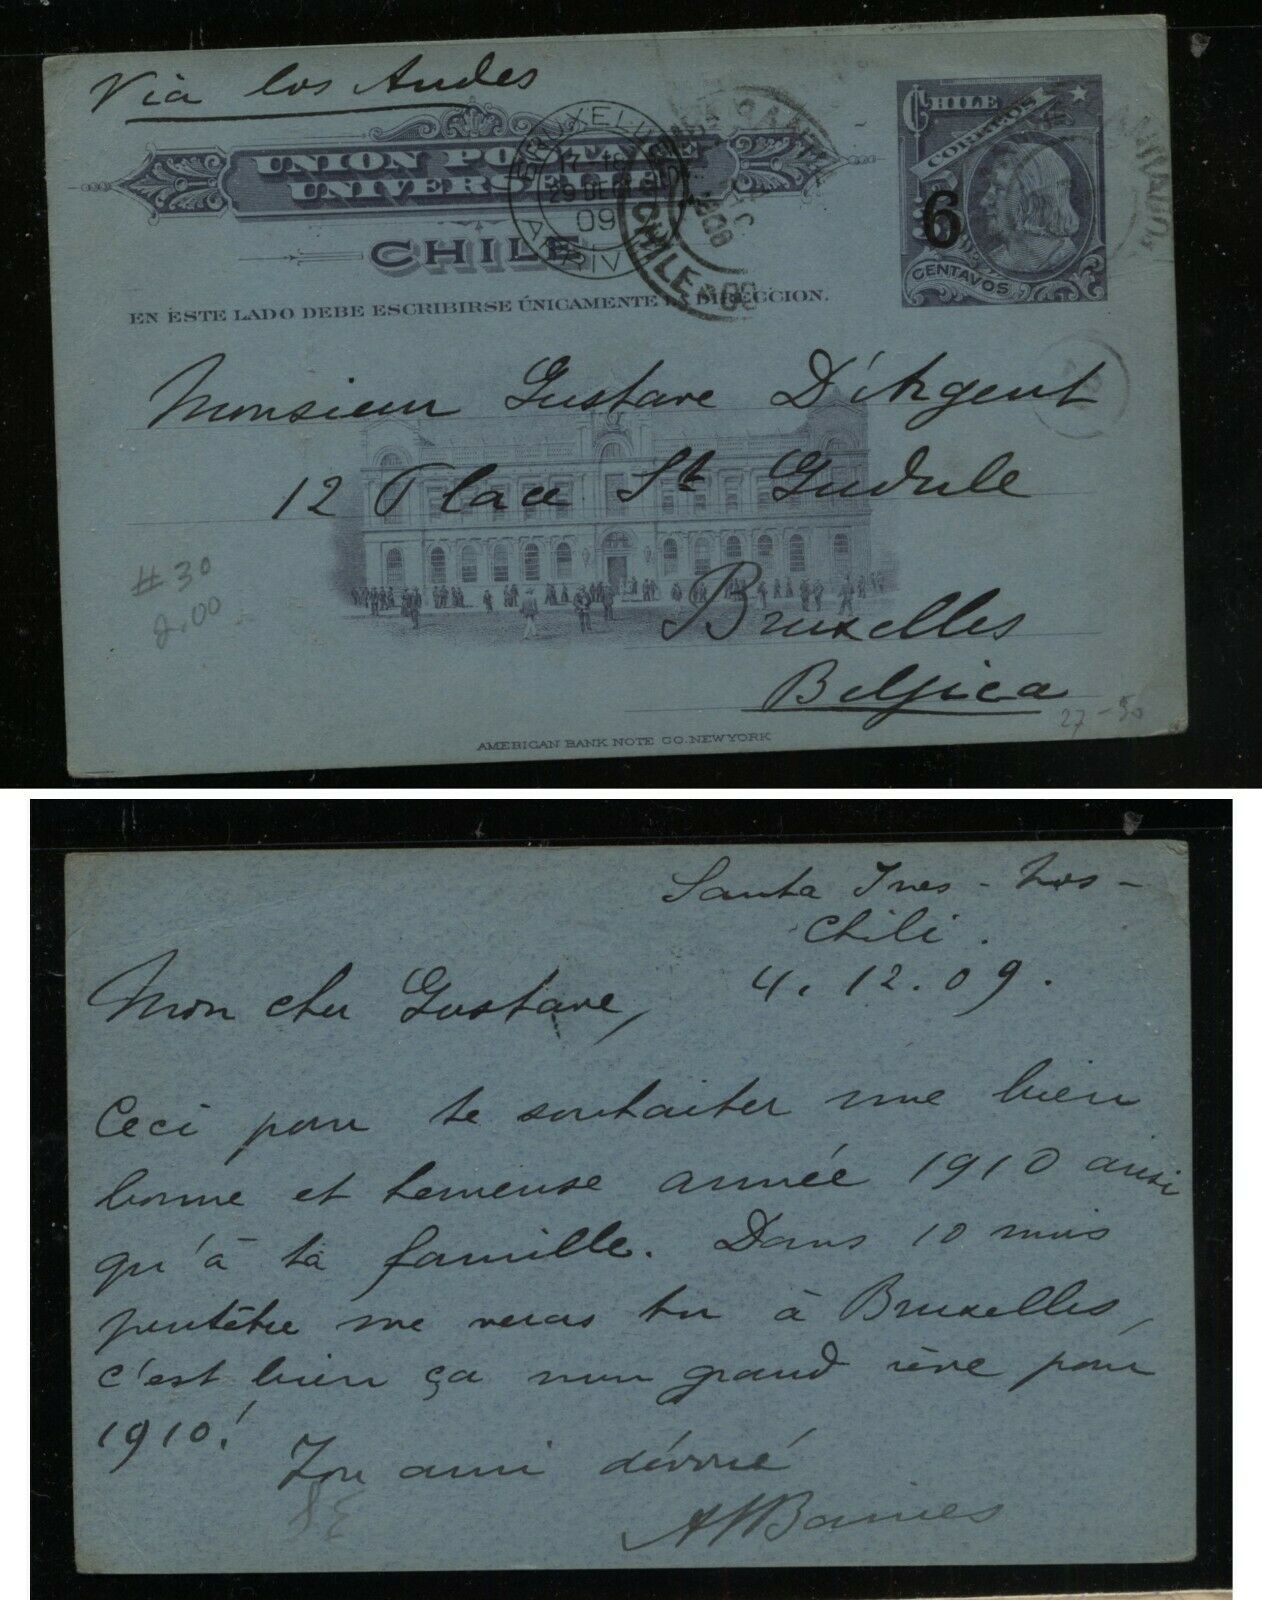 Via los Andes
UNION POSTALE
UNIVERSELLE
CHILE
EN ÉSTE LADO DEBE ESCRIBIRSE ÚNICAMENTE LA DIRECCION.
BRUXELLES
29 DEC
09
ARRIV
CHILE
CHILE
CORREOS
6
CENTAVOS
Monsieur Gustave D'Argent
12 Place Ste Gudule
Bruxelles
Belgica
# 30
2.00
27-50
AMERICAN BANK NOTE CO. NEW YORK
Santa Ines - Nos -
Chili.
4. 12. 09.
Mon cher Gustave,
Ceci pour te souhaiter une bien
bonne et heureuse année 1910 ainsi
qu'à ta famille. Dans 10 mois
peutêtre me verras tu à Bruxelles,
c'est bien ça mon grand rêve pour
1910!
Ton ami dévoué